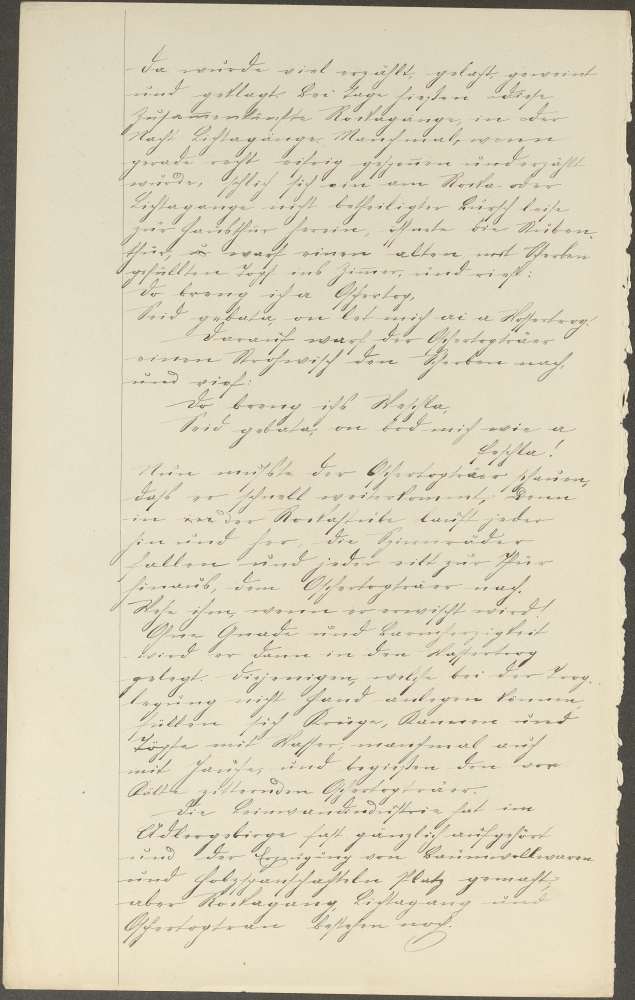 Da wurde viel erzählt, gelacht, geweint
und geklagt. Bei Tage hießen diese
Zusammenkünfte Rockagänge, in der
Nacht Lichtagänge. Manchmal, wenn
gerade recht eifrig gesponnen und erzählt
wurde, schlich sich ein am Rocka- oder
Lichtagange nicht betheiligter Bursch leise
zur Hausthür herein, öffnete die Stuben-
thür, u warf einen alten mit Scherben
gefüllten Topf ins Zimmer, und rief:
Do breng ich a Oschertop,
Seid gebata, on let mich ai a Wossertrog!
Darauf warf der Oschertopträer
einen Strohwisch den Scherben nach,
und rief:
Do breng ichs
Seid gebata, on bod mich wie a
Feschla!
Nun mußte der Oschertopträer schauen,
daß er schnell weiterkommt, denn
in der Rockastube lauft jeder
hin und her, die Spinnräder
fallen und jeder eilt zur Thür
hinaus, dem Oschertopträer nach.
Wehe ihm, wenn er erwischt wird!
Ohne Gnade und Barmherzigkeit
wird er dann in den Wassertrog
gelegt. Diejenigen, welche bei der Trog-
legung nicht Hand anlegen können,
füllten sich Krüge, Kannen und
Töpfe mit Wasser, manchmal auch
mit Jauche, und begießen den vor
Kälte zitternden Oschertopträer.
Die Leinwandindustrie hat im
Adlergebirge fast gänzlich aufgehört
und der Erzeugung von Baumwollwaren
und Holzspanschachteln Platz gemacht,
aber Rockagang, Lichtagang und
Oschertoptran bestehen noch.